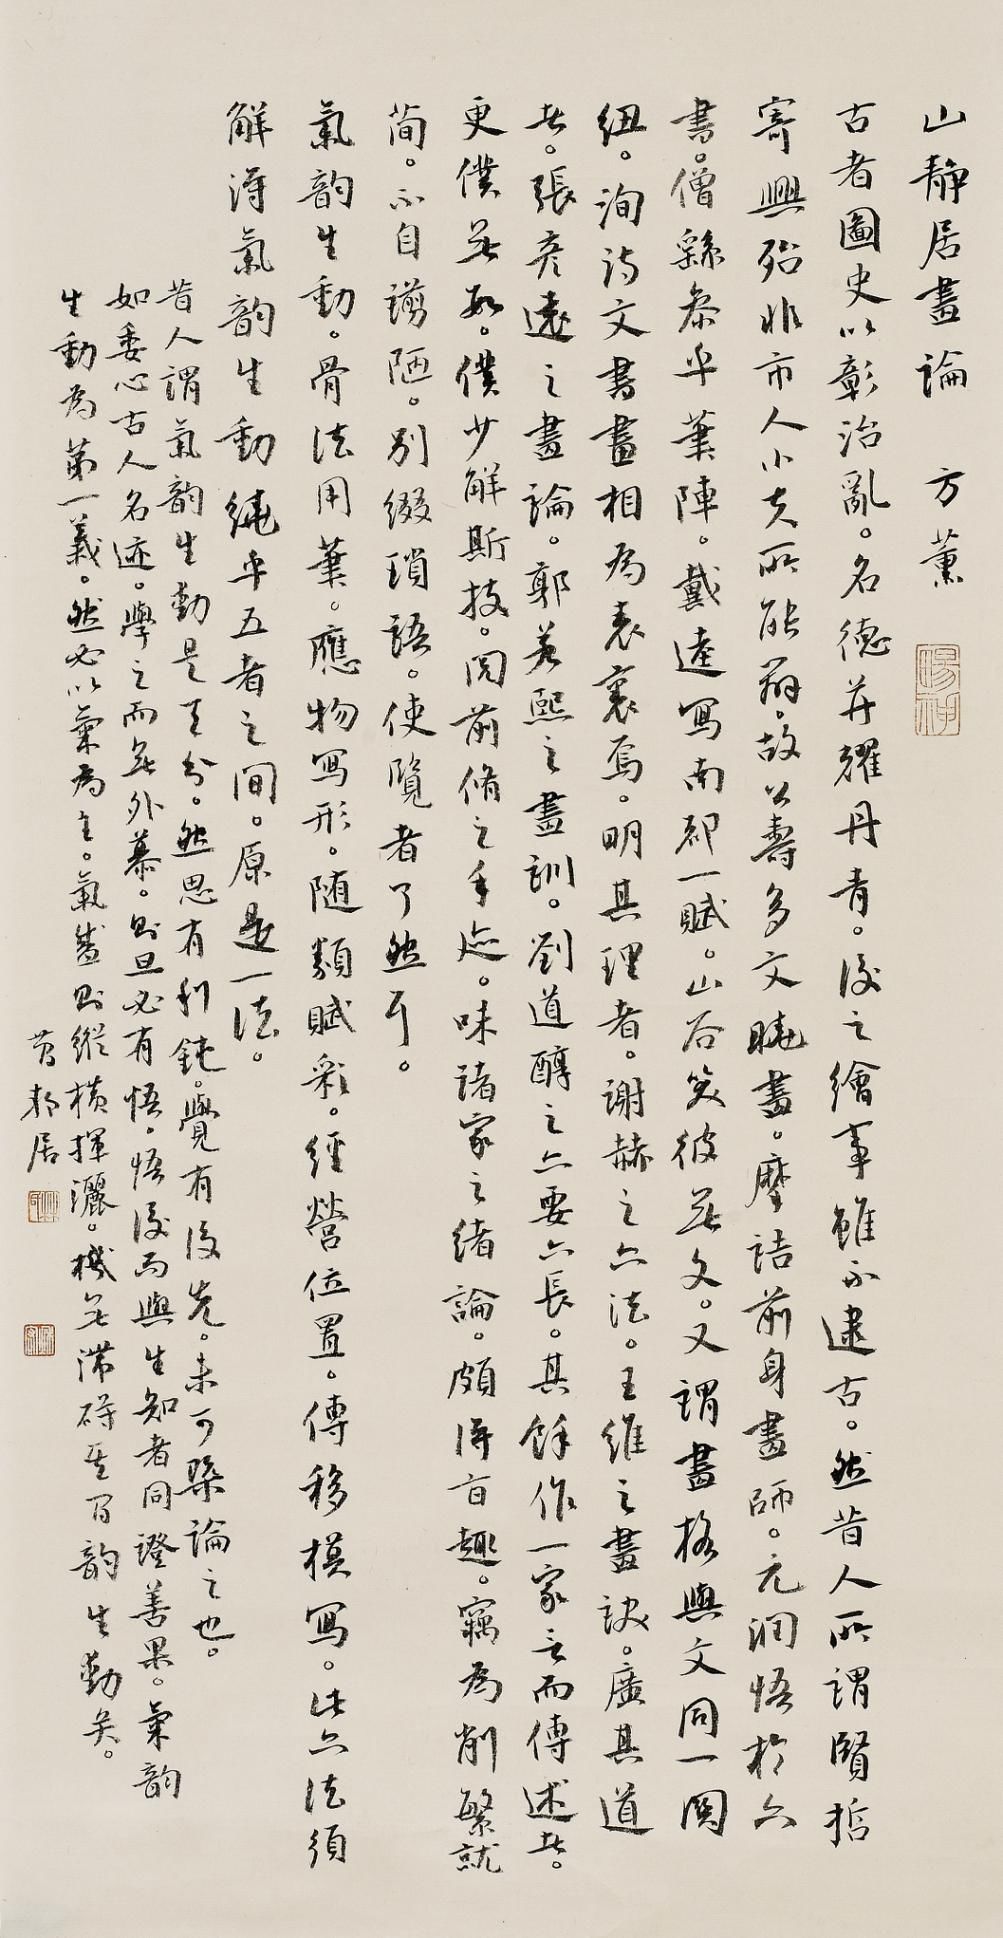 山靜居畫論 方薰
古者圖史以彰治亂。名德并耀丹青。後之繪事雖不逮古。然昔人所謂賢哲
寄興殆非市人小夫所能辦。故公壽多文曉畫。摩詰前身畫師。元潤悟於六
書。僧繇參乎筆陣。戴逵寫南都一賦。山谷笑彼無文。又謂畫格與文同一關
紐。洵詩文書畫相為表裏焉。明其理者。謝赫之六法。王維之畫訣。廣其道
者。張彥遠之畫論。郭若熙之畫訓。劉道醇之六要六長。其餘作一家言而傳述者。
更僕無數。僕少解斯技。閱前脩之手迹。味諸家之緒論。頗得旨趣。竊為削繁就
简。不自謭陋。別綴瑣語。使覽者了然耳。
氣韵生動。骨法用筆。應物寫形。随類賦彩。經營位置。傳移模寫。此六法須
解得氣韵生動繞乎五者之間。原是一法。
昔人謂氣韵生動是天分。然思有利鈍。覺有後先。未可槩論之也。
如委心古人名迹。學之而無外慕。則旦必有悟。悟後而與生知者同證善果。氣韵
生動為第一義。然必以氣為主。氣盛則縱橫揮灑。機無滯碍其間韵生動矣。